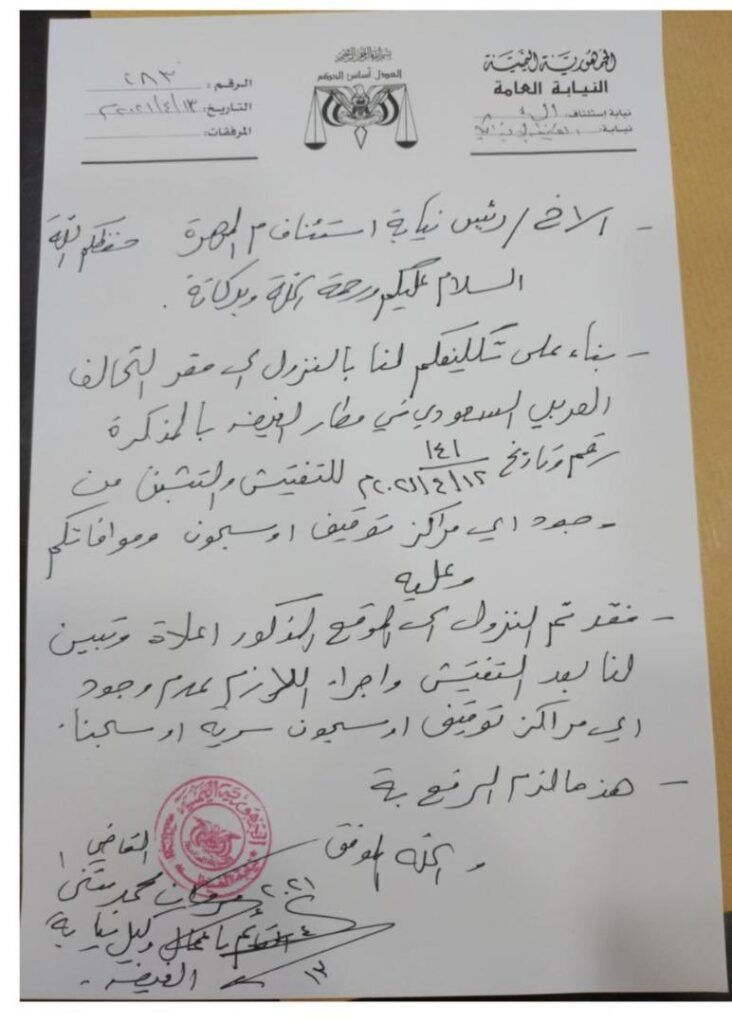 الجمهورية اليمنية
النيابة العامة
نيابة إستئناف:
نيابة:
بسم الله الرحمن الرحيم
العدل أساس الحكم
الرقم: ٢٨٣
التاريخ: ١٣/٤/٢٠٢١م
المرفقات:
- الاخ / رئيس نيابة استئناف م المهرة حفظكم الله
السلام عليكم ورحمة الله وبركاتة .
- بناء على تكليفكم لنا بالنزول الى مقر التحالف
العربي السعودي في مطار الغيضه بالمذكرة
رقم وتاريخ ١٤١ ١٢/٤/٢٠٢١م للتفتيش والتثبت من
وجود اي مراكز توقيف او سجون وموافاتكم
وعليه
- فقد تم النزول الى الموقع المذكور اعلاة وتبين
لنا بعد التفتيش واجراء اللازم عدم وجود
اي مراكز توقيف او سجون سريه او سجناء.
- هذ مالزم الرفع بة
و الله الموفق
القاضي /
محمد مثنى
القائم باعمال وكيل نيابة
الغيضه .
٢٠٢١
٤
١٣